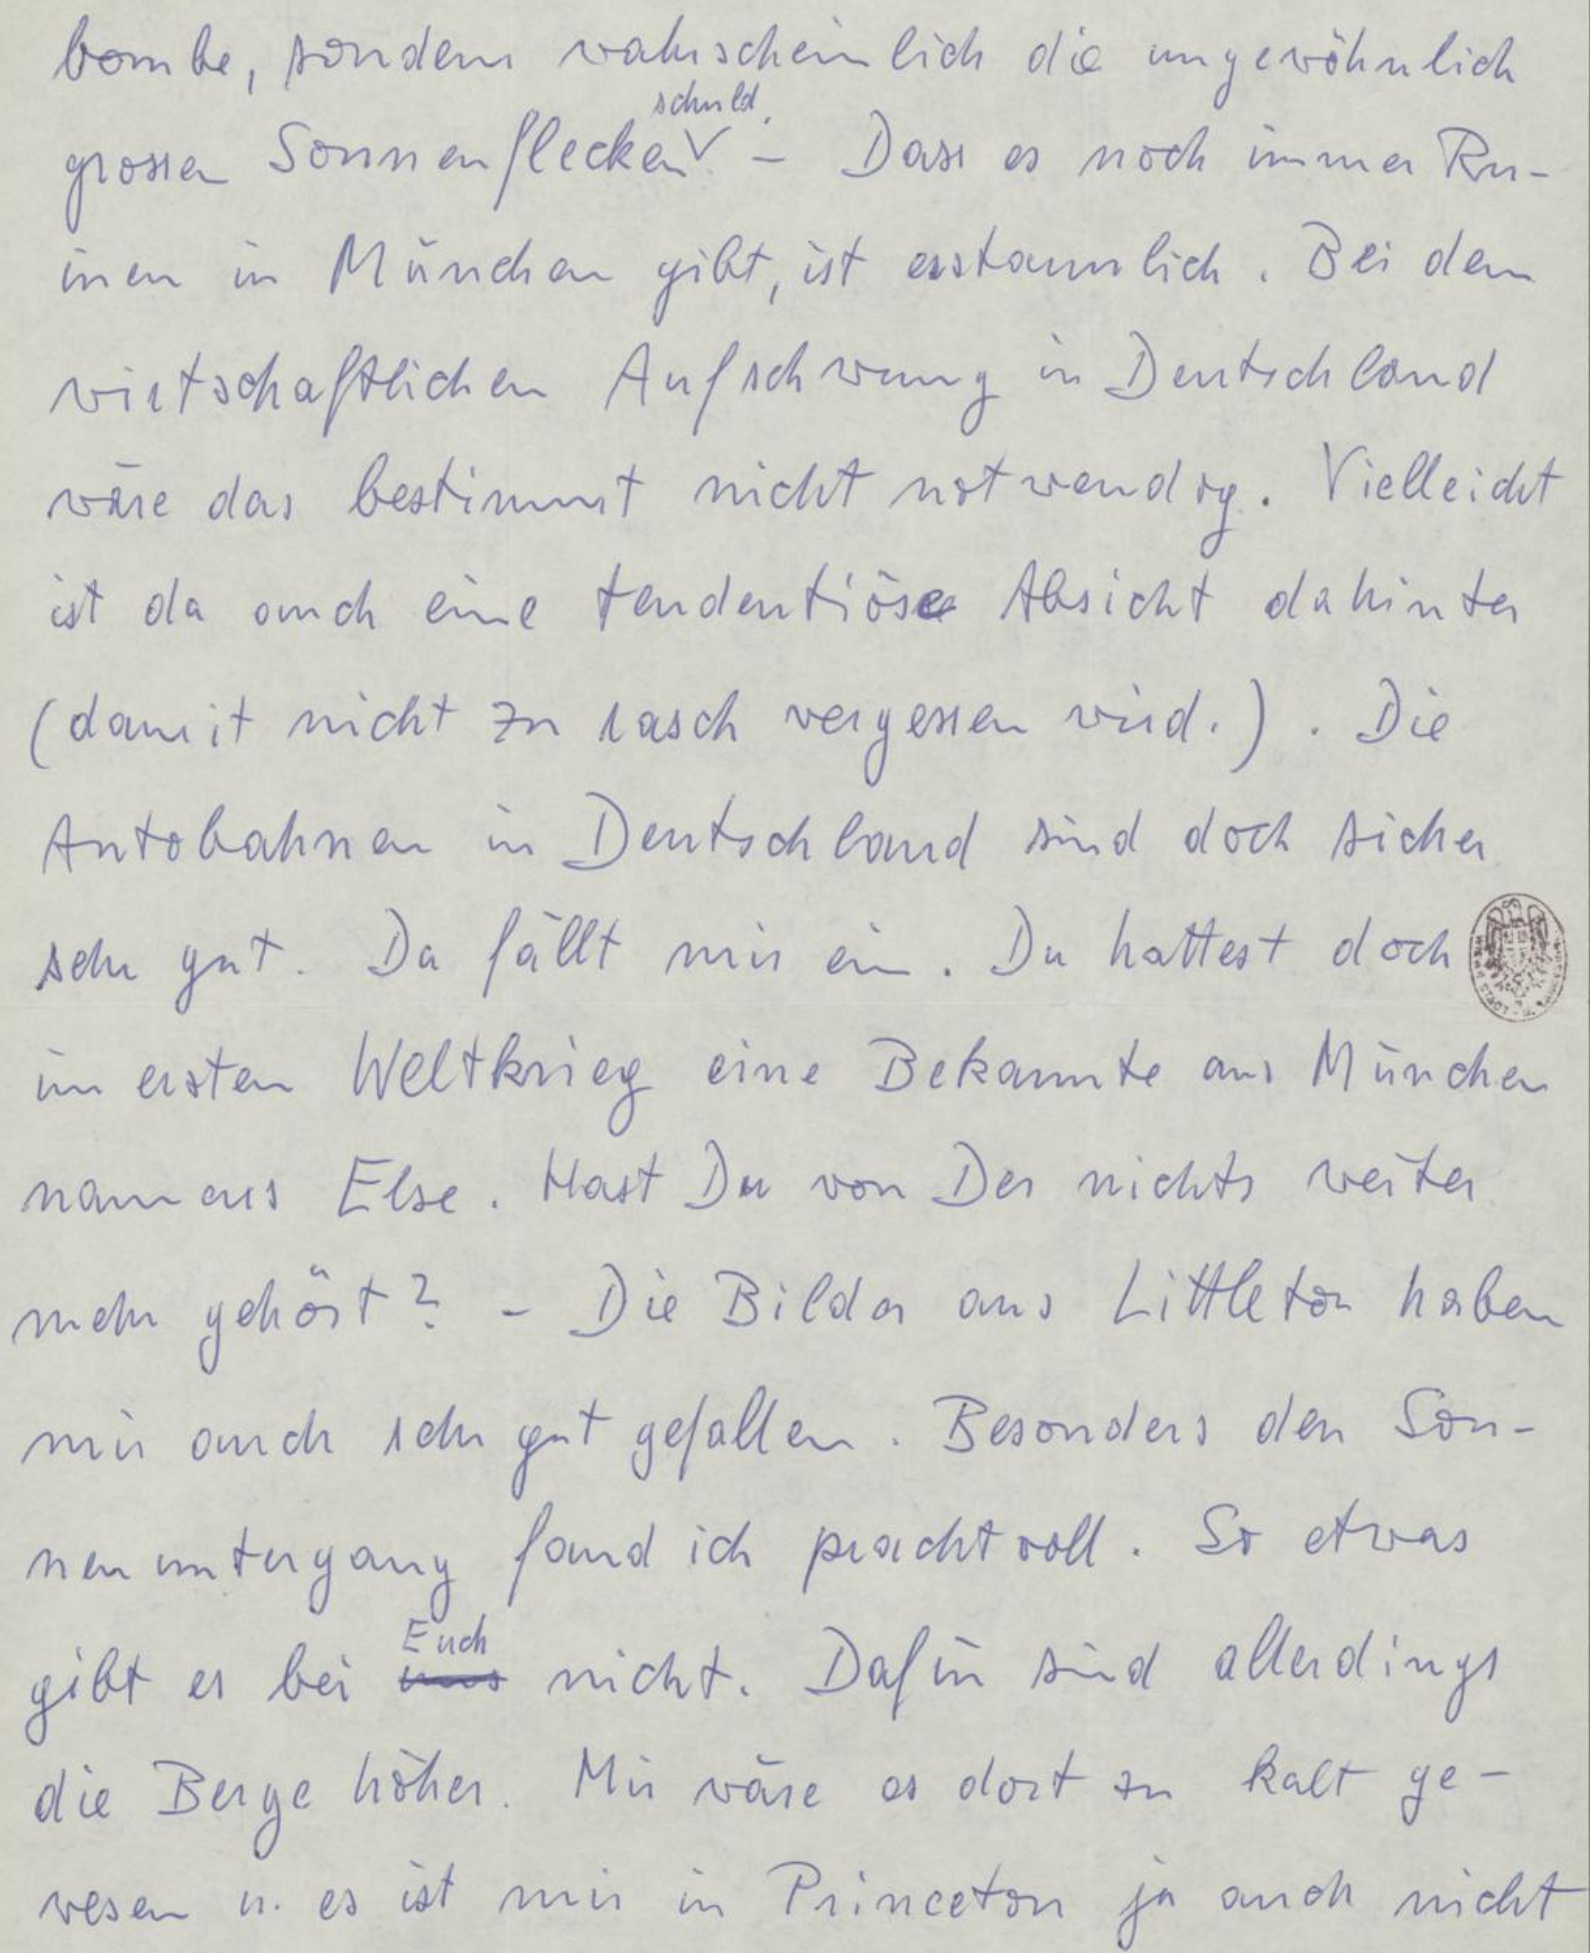 bombe, sondern wahrscheinlich die ungewöhnlich
schuld,
grossen Sonnenflecken – Dass es noch immer Ru-
inen in München gibt, ist erstaunlich. Bei dem
wirtschaftlichen Aufschwung in Deutschland
wäre das bestimmt nicht notwendig. Vielleicht
ist da auch eine tendentiöse Absicht dahinter
(damit nicht zu rasch vergessen wird.). Die
Autobahnen in Deutschland sind doch sicher
sehr gut. Da fällt mir ein. Du hattest doch
im ersten Weltkrieg eine Bekannte aus München
namens Else. Hast Du von Der nichts weiter
mehr gehört? – Die Bilder aus Littleton haben
mir auch sehr gut gefallen. Besonders den Son-
nenuntergang fand ich prachtvoll. So etwas
Euch
gibt es bei uns nicht. Dafür sind allerdings
die Berge höher. Mir wäre es dort zu kalt ge-
wesen u. es ist mir in Princeton ja auch nicht